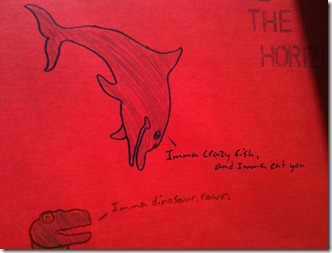 THE
HORIZ
Imma crazy fish,
and Imma eat you
Imma dinosaur, rawr.